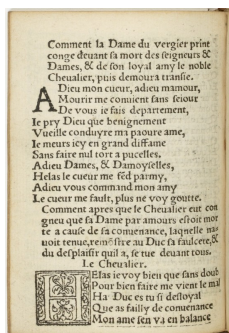 Comment la Dame du vergier print
congé deuant sa mort des seigneurs &
Dames, & de son loyal amy le noble
Cheualier, puis demoura transie.
A Dieu mon cueur, adieu mamour,
Mourir me conuient sans seiour
De vous ie fais departement,
Ie pry Dieu que benignement
Vueille conduyre ma paoure ame,
Ie meurs icy en grand diffame
Sans faire nul tort a pucelles.
Adieu Dames, & Damoyselles,
Helas le cueur me fed parmy,
Adieu vous command mon amy
Le cueur me fault, plus ne voy goutte.
Comment apres que le Cheualier eut con
gneu que sa Dame par amours estoit mor
te a cause de sa conuenance, laquelle na
uoit tenue, remõstre au Duc sa faulceté, &
du desplaisir quil a, se tue deuant tous.
Le Cheualier.
HElas ie voy bien que sans doub
Pour bien faire me vient le mal
Ha Duc es tu si desloyal
Que as failly de conuenance
Mon ame sen va en balance